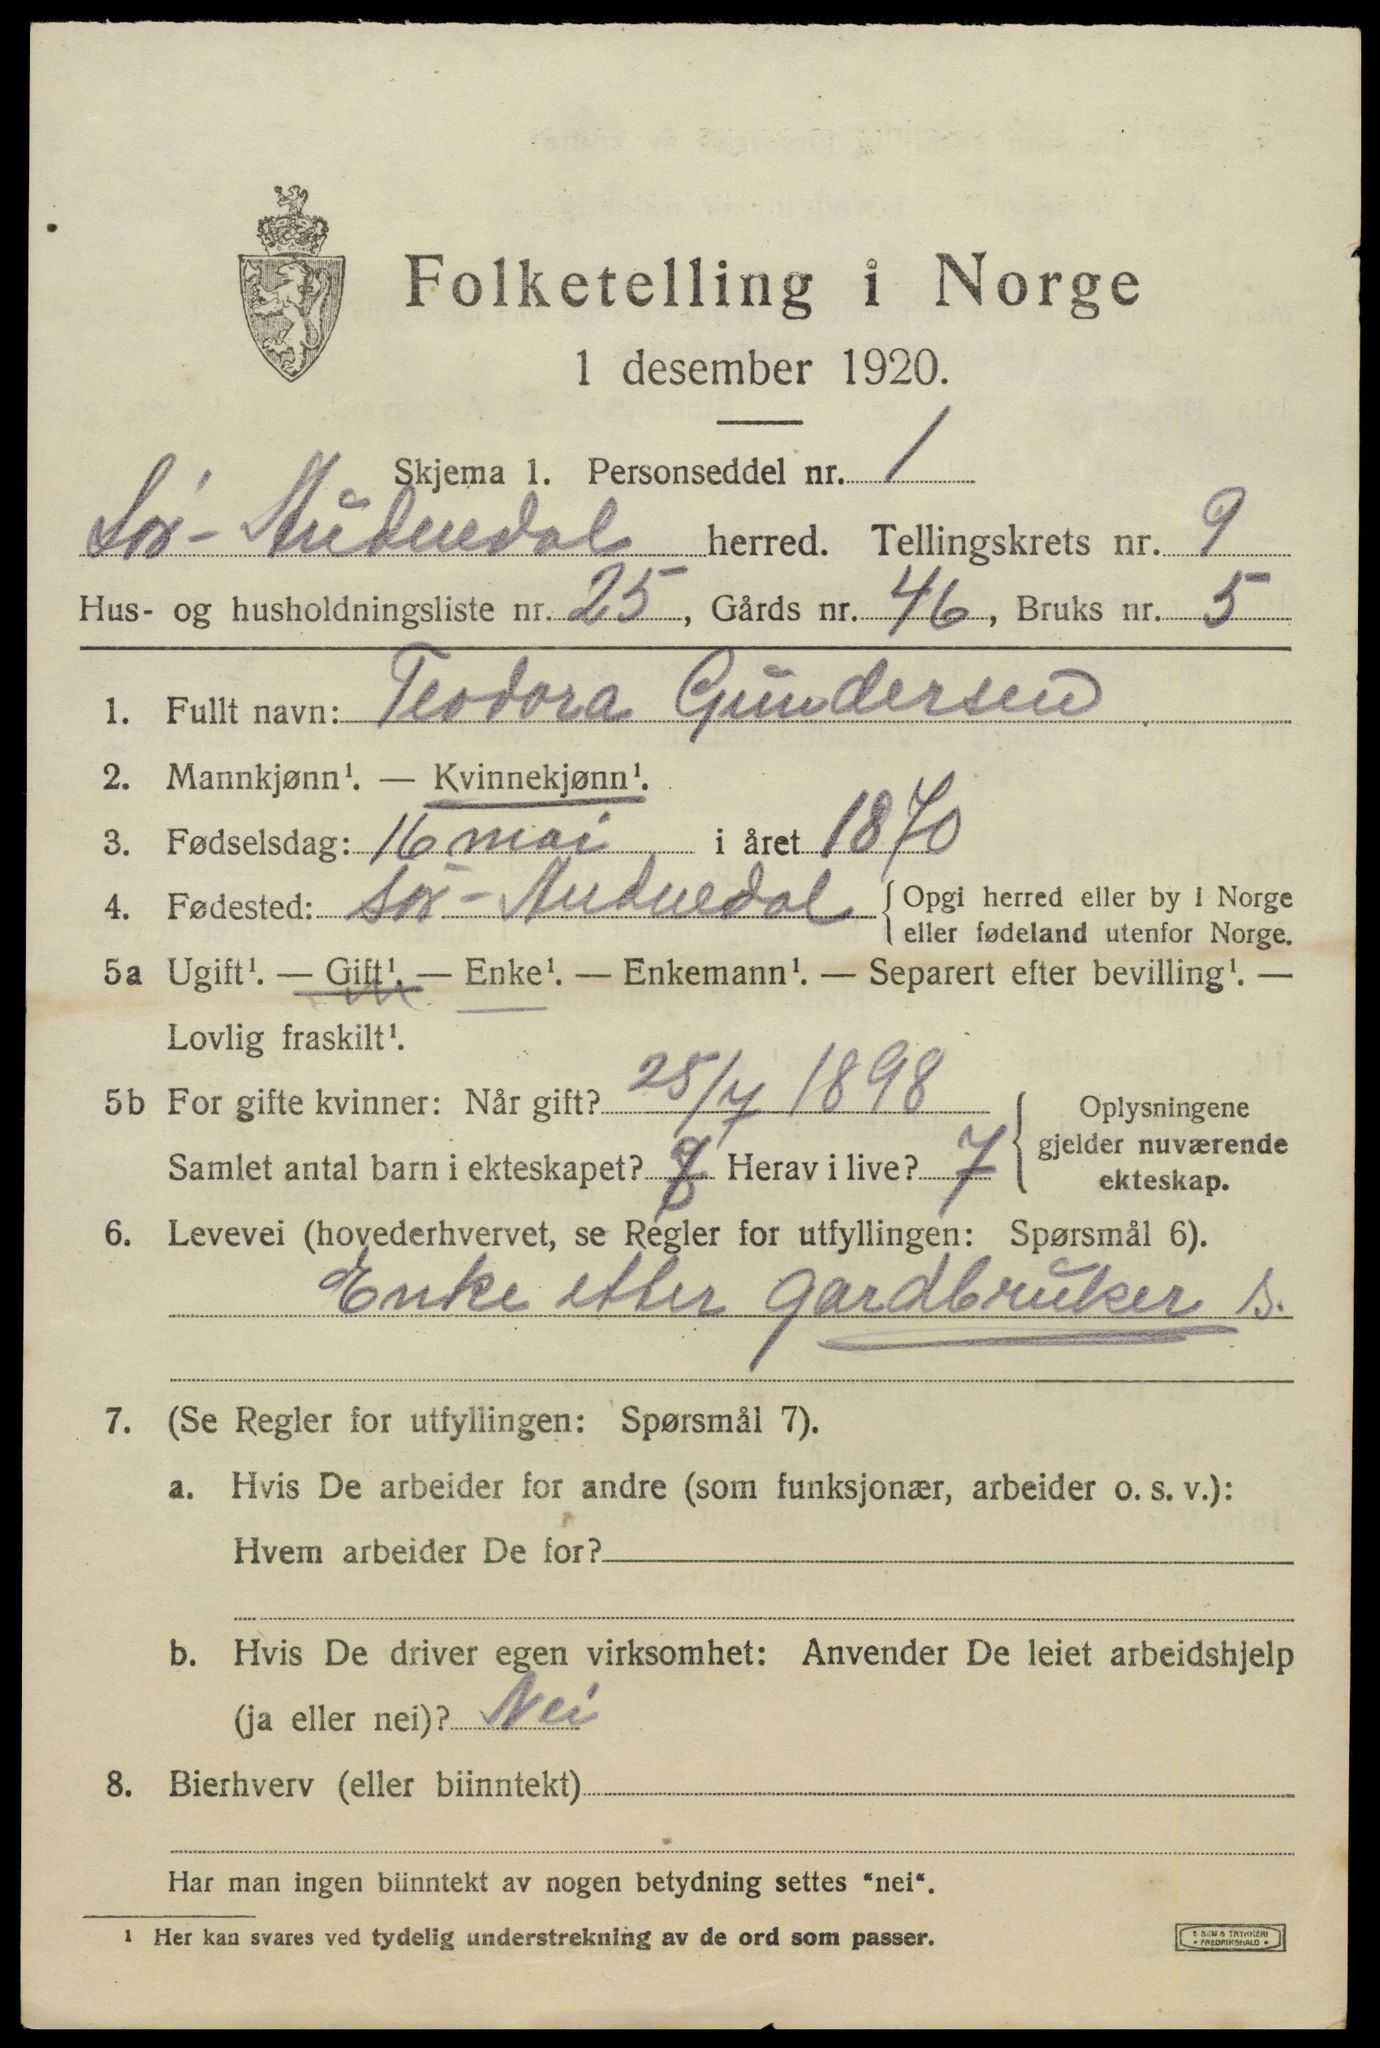 Folketelling i Norge
1 desember 1920.
Skjema 1. Personseddel nr. 1
Sör-Audnedal herred. Tellingskrets nr. 9
Hus- og husholdningsliste nr. 25, Gårds nr. 46, Bruks nr. 5
1. Fullt navn: Teodora Gundersen
2. Mannkjønn¹. — Kvinnekjønn¹.
3. Fødselsdag: 16 mai i året 1870
4. Fødested: Sör-Audnedal { Opgi herred eller by i Norge
eller fødeland utenfor Norge.
5a Ugift¹. — Gift¹. — Enke¹. — Enkemann¹. — Separert efter bevilling¹. —
Lovlig fraskilt¹.
5b For gifte kvinner: Når gift? 25/7 1898
Samlet antal barn i ekteskapet? 8 Herav i live? 7
Oplysningene
gjelder nuværende
ekteskap.
6. Levevei (hovederhvervet, se Regler for utfyllingen: Spørsmål 6).
Enke etter gardbruker s.
7. (Se Regler for utfyllingen: Spørsmål 7).
a. Hvis De arbeider for andre (som funksjonær, arbeider o. s. v.):
Hvem arbeider De for?
b. Hvis De driver egen virksomhet: Anvender De leiet arbeidshjelp
(ja eller nei)? Nei
8. Bierhverv (eller biinntekt)
Har man ingen biinntekt av nogen betydning settes "nei".
¹ Her kan svares ved tydelig understrekning av de ord som passer.
E. SEM'S TRYKKERI
FREDRIKSHALD